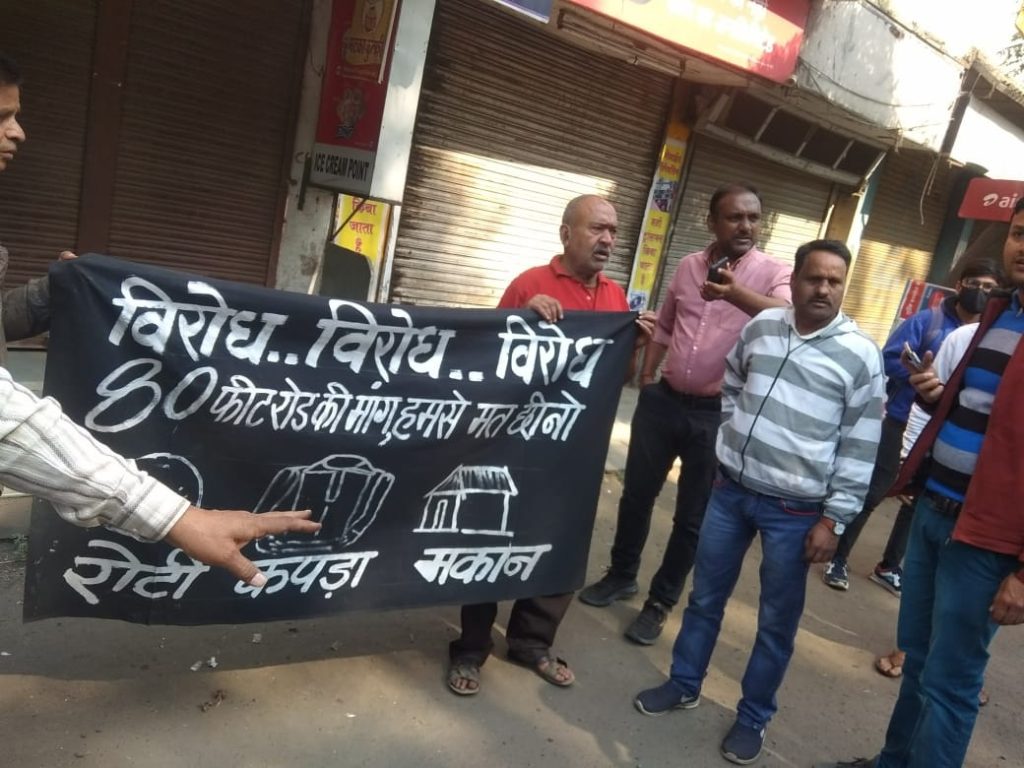 ICE CREAM POINT
किया
जाता
है
विरोध..विरोध.. विरोध
80 फीट रोड की मांग, हमसे मत छीनो
रोटी कपड़ा मकान
ai